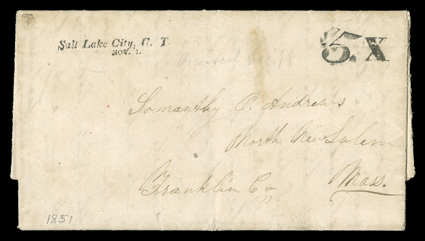 Salt Lake City, U. T.
NOV. 1.
5. X
Received Dec 18
Somanthy P. Andrews
North New Salem
Franklin Co,,
Mass.
1851